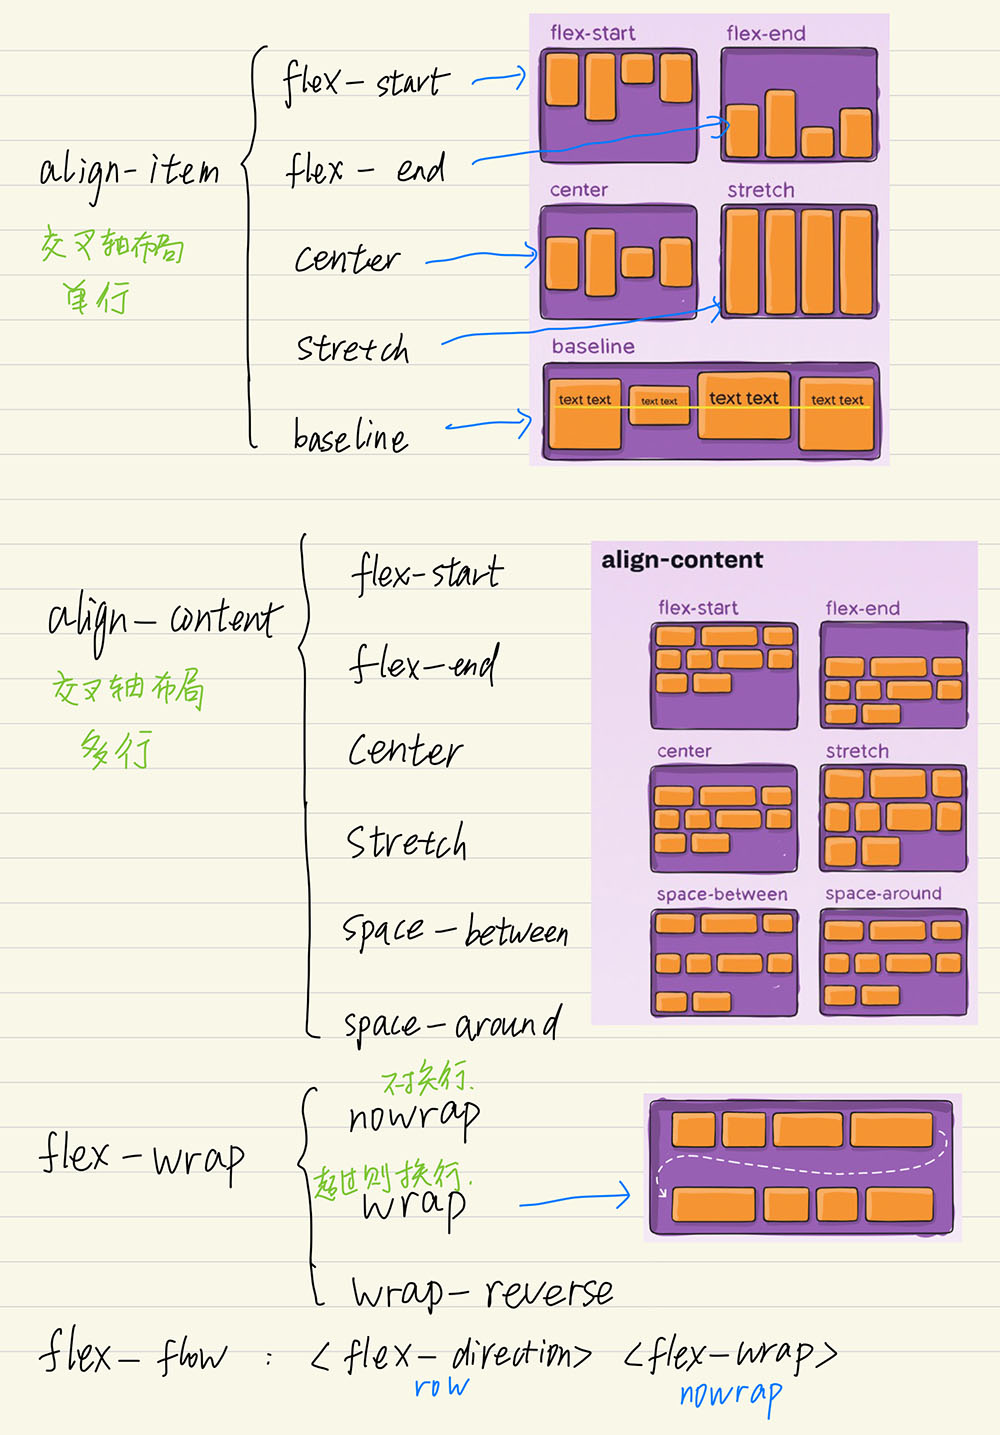 align-item
交叉轴布局
单行
flex-start
flex-end
center
stretch
baseline
flex-start
flex-end
center
stretch
baseline
text text
text text
text text
text text
align-content
交叉轴布局
多行
flex-start
flex-end
center
stretch
space-between
space-around
align-content
flex-start
flex-end
center
stretch
space-between
space-around
flex-wrap
不换行.
nowrap
超过则换行.
wrap
wrap-reverse
flex-flow : <flex-direction> <flex-wrap>
row
nowrap